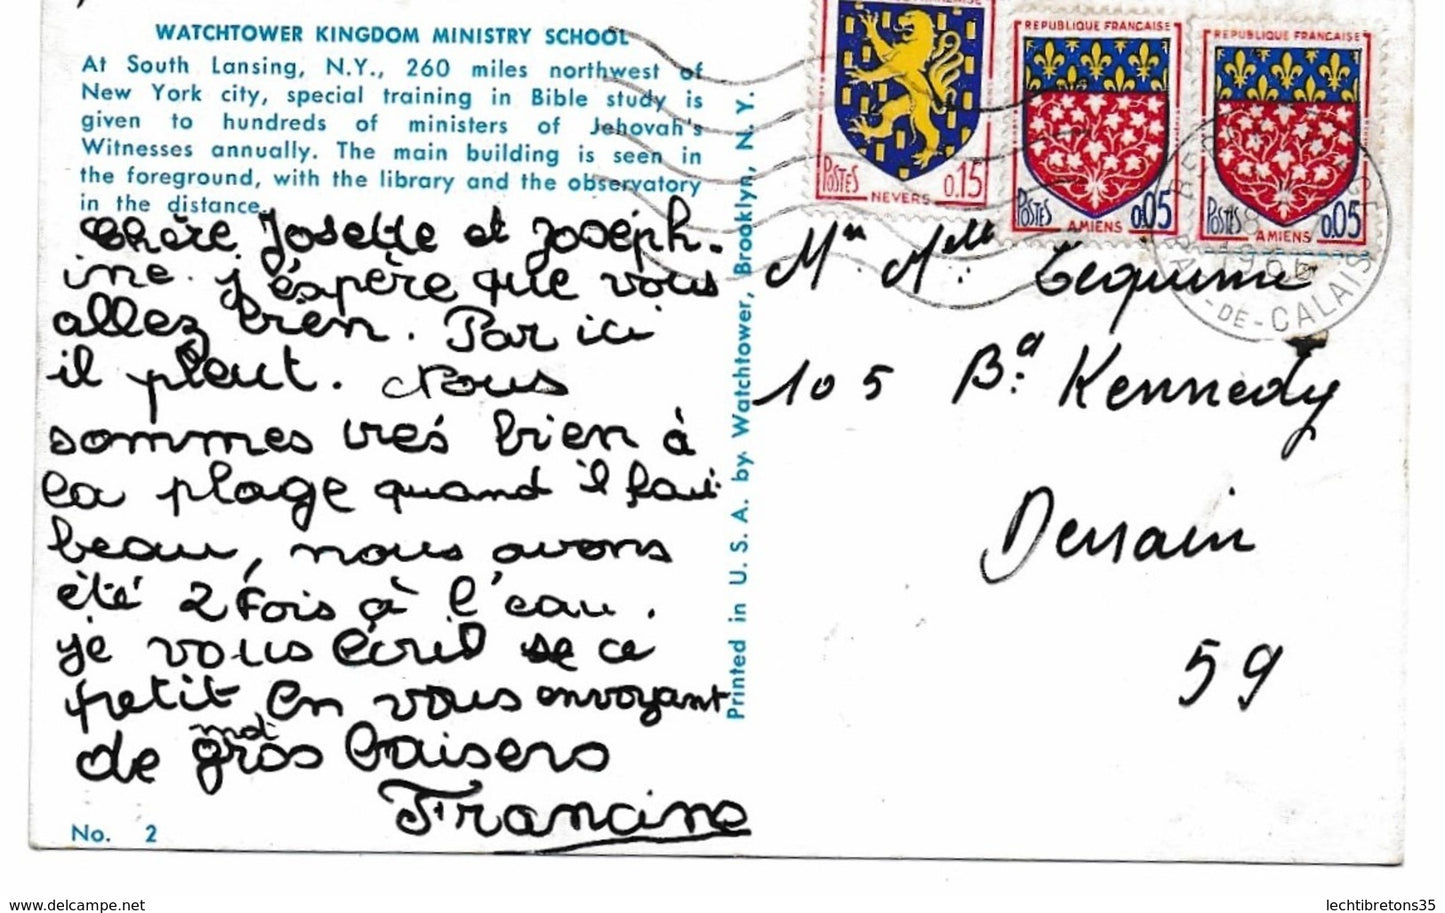 WATCHTOWER KINGDOM MINISTRY SCHOOL
At South Lansing, N.Y., 260 miles northwest of
New York city, special training in Bible study is
given to hundreds of ministers of Jehovah's
Witnesses annually. The main building is seen in
the foreground, with the library and the observatory
in the distance.
chère Josette et Joseph.
ine. j'éspère que vous
allez bien. Par ici
il pleut. Nous
sommes très bien à
la plage quand il fait
beau, nous avons
été 2 fois à l'eau.
je vous écris ce
petit mot En vous envoyant
de gros baisers
Francine
No. 2
Printed in U. S. A. by Watchtower, Brooklyn, N. Y.
FRANÇAISE
POSTES 0.15
NEVERS
REPUBLIQUE FRANÇAISE
POSTES 0,05
AMIENS
REPUBLIQUE FRANÇAISE
POSTES 0,05
AMIENS
-DE-CALAIS
Mr Melle
105 Bd Kennedy
Denain
59
lechtibretons35